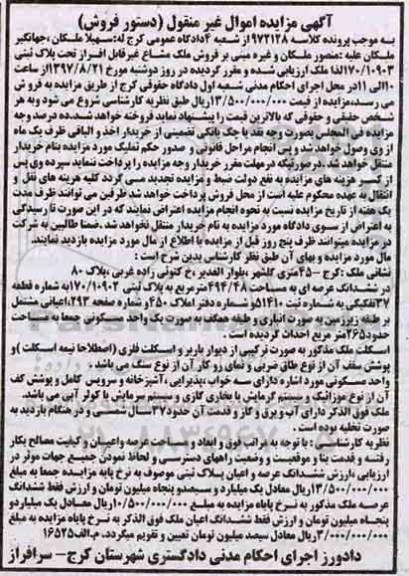 آگهی مزایده اموال غیر منقول (دستور فروش)
به موجب پرونده کلاسه ۹۷۲۱۲۸ از شعبه ۴دادگاه عمومی کرج له:سهیلا ملکان ،جهانگیر
ملکان علیه :منصور ملکان و غیره مبنی بر فروش ملک مشاع غیر قابل افراز تحت پلاک ثبتی
۱۷۰/۱۰۹۰۳لذا ملک ارزیابی شده و مقرر گردیده در روز دوشنبه مورخ ۱۳۹۷/۸/۲۱از ساعت
۱۰الی ۱۱در محل اجرای احکام مدنی شعبه اول دادگاه حقوقی کرج از طریق مزایده به فروش
می رسد،مزایده از قیمت ۱۳/۵۰۰/۰۰۰/۰۰۰ریال طبق نظریه کارشناسی شروع می شود وبه هر
شخص حقیقی و حقوقی که بالاترین قیمت را پیشنهاد نماید فروخته خواهد شد.ده درصد وجه
مزایده فی المجلس بصورت وجه نقد یا چک بانکی تضمینی از خریدار اخذ و الباقی ظرف یک ماه
از وی وصول خواهد شد و پس انجام مراحل قانونی و صدور حکم تملیک مورد مزایده بنام خریدار
منتقل خواهد شد . در صورتیکه درمهلت مقرر خریدار وجه مزایده را پرداخت ننماید سپرده وی پس
از کسر هزینه های مزایده به نفع دولت ضبط و مزایده تجدید می گردد کلیه هزینه های نقل و
انتقال به عهده محکوم علیه است از محل فروش پرداخت خواهد شد طرفین می توانند ظرف مدت
یک هفته از تاریخ مزایده نسبت به نحوه انجام مزایده اعتراض نمایند که در این صورت تا رسیدگی
به اعتراض از سوی دادگاه مورد مزایده به نام خریدار منتقل نخواهد شد .ضمنا طالبین به شرکت
در مزایده میتوانند ظرف پنج روز قبل از مزایده با اطلاع از مال مورد مزایده بازدید نمایند.
مال مورد مزایده و بهای آن طبق نظر کارشناس بدین شرح است :
نشانی ملک :کرج –۴۵متری گلشهر ،بلوار الغدیر ،خ کنونی زاده غربی ،پلاک ۸۰
در ششدانگ عرصه ای به مساحت ۴۹۴/۴۸ مترمربع به پلاک ثبتی ۱۷۰/۱۰۹۰۲به شماره قطعه
۳۷تفکیکی به شماره ثبت ۵۱۴۱۰و شماره دفتر املاک ۴۵۰و شماره صفحه ۲۹۳،اعیانی مشتمل
بر طبقه زیرزمین به صورت انباری و طبقه همکف به صورت یک واحد مسکونی جمعا به مساحت
حدود۲۶۵متر مربع احداث گردیده است .
اسکلت ملک مذکور به صورت ترکیبی از دیوار باربر و اسکلت فلزی (اصطلاحا نیمه اسکلت )و
پوشش سقف آن از نوع طاق ضربی و نمای رو کار آن از نوع سنگ می باشد .
واحد مسکونی مورد اشاره دارای سه خواب ،پذیرایی ،آشپزخانه و سرویس کامل و پوشش کف
آن از نوع موزائیک و سیستم گرمایش با بخاری گازی و سیستم سرمایش با کولر آبی می باشد.
ملک فوق الذکر دارای آب و برق و گاز و قدمت آن حدود۳۷سال شمسی و در هنگام بازدید به
صورت تخلیه بوده است .
نظریه کارشناسی : با توجه به مراتب فوق و ابعاد و مساحت عرصه واعیان و کیفیت مصالح بکار
رفته و قدمت بنا و موقعیت و وضعیت راههای دسترسی و لحاظ نمودن جمیع جهات موثر در
ارزیابی ،ارزش ششدانگ عرصه و اعیان پلاک ثبتی موصوف به نرخ پایه مزایده جمعا به مبلغ
۱۳/۵۰۰/۰۰۰/۰۰۰ریال معادل یک میلیارد و سیصدو پنجاه میلیون تومان و ارزش فقط ششدانگ
عرصه ملک مذکور به نرخ پایه مزایده به مبلغ ۱۰/۵۰۰/۰۰۰/۰۰۰ریال معادل یک میلیاردو
پنجاه میلیون تومان و ارزش فقط ششدانگ اعیان ملک فوق الذکر به نرخ پایه مزایده به مبلغ
۳/۰۰۰/۰۰۰/۰۰۰ریال معادل سیصد میلیون تومان تعیین و تقویم میگردد. م.الف۱۶۵۲۵
دادورز اجرای احکام مدنی دادگستری شهرستان کرج– سرافراز